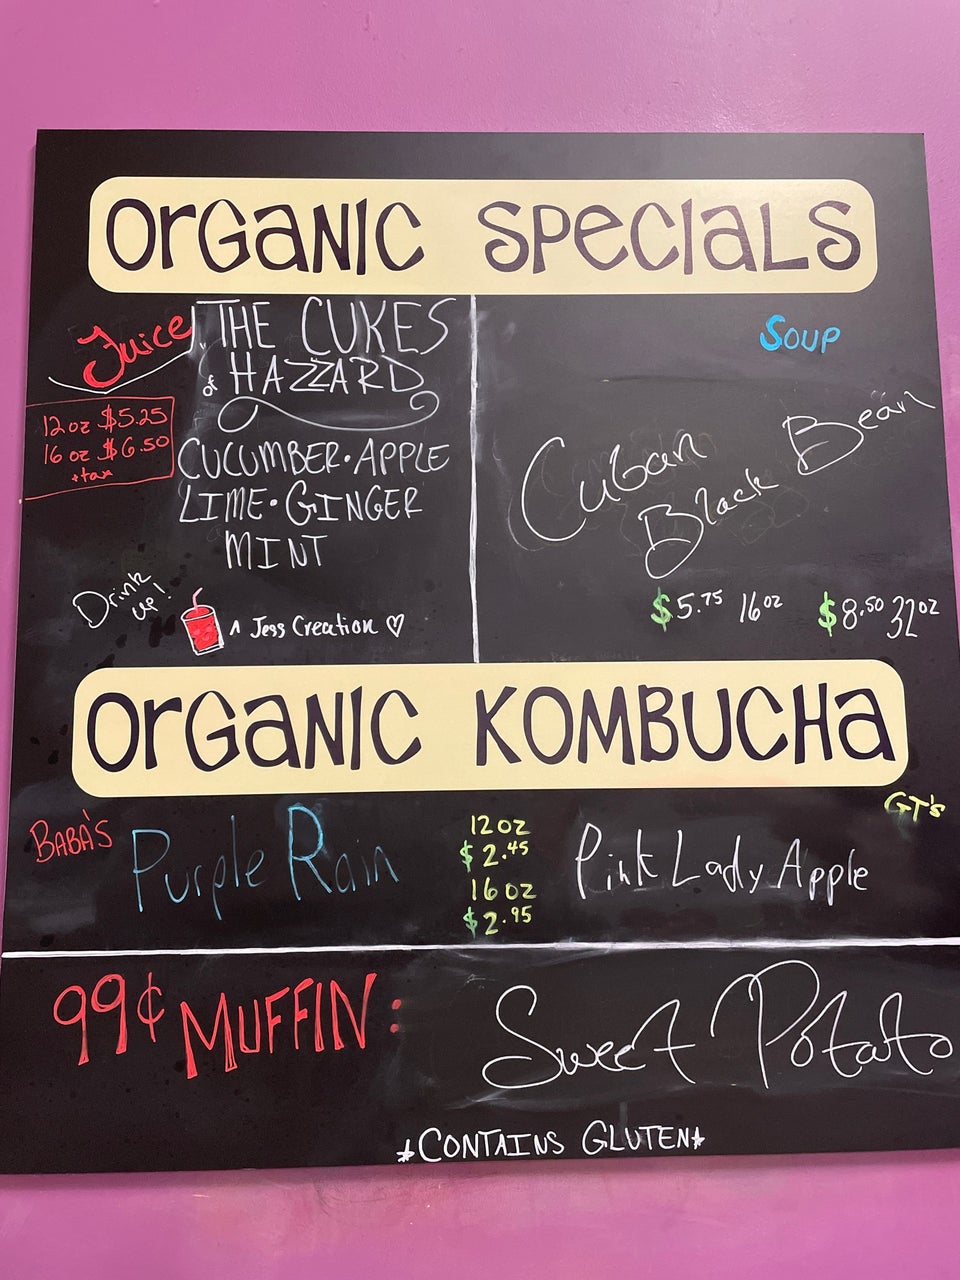 ORGANIC SPECIALS
Juice
THE CUKES
of HAZZARD
12 oz $5.25
16 oz $6.50
+tax
CUCUMBER • APPLE
LIME • GINGER
MINT
Drink
up!
A Jess Creation ♡
SOUP
Cuban
Black Bean
$5.75 16oz $8.50 32oz
ORGANIC KOMBUCHA
BABA'S
Purple Rain
12 oz
$2.45
16 oz
$2.95
GT's
Pink Lady Apple
99¢ MUFFIN: Sweet Potato
*CONTAINS GLUTEN*